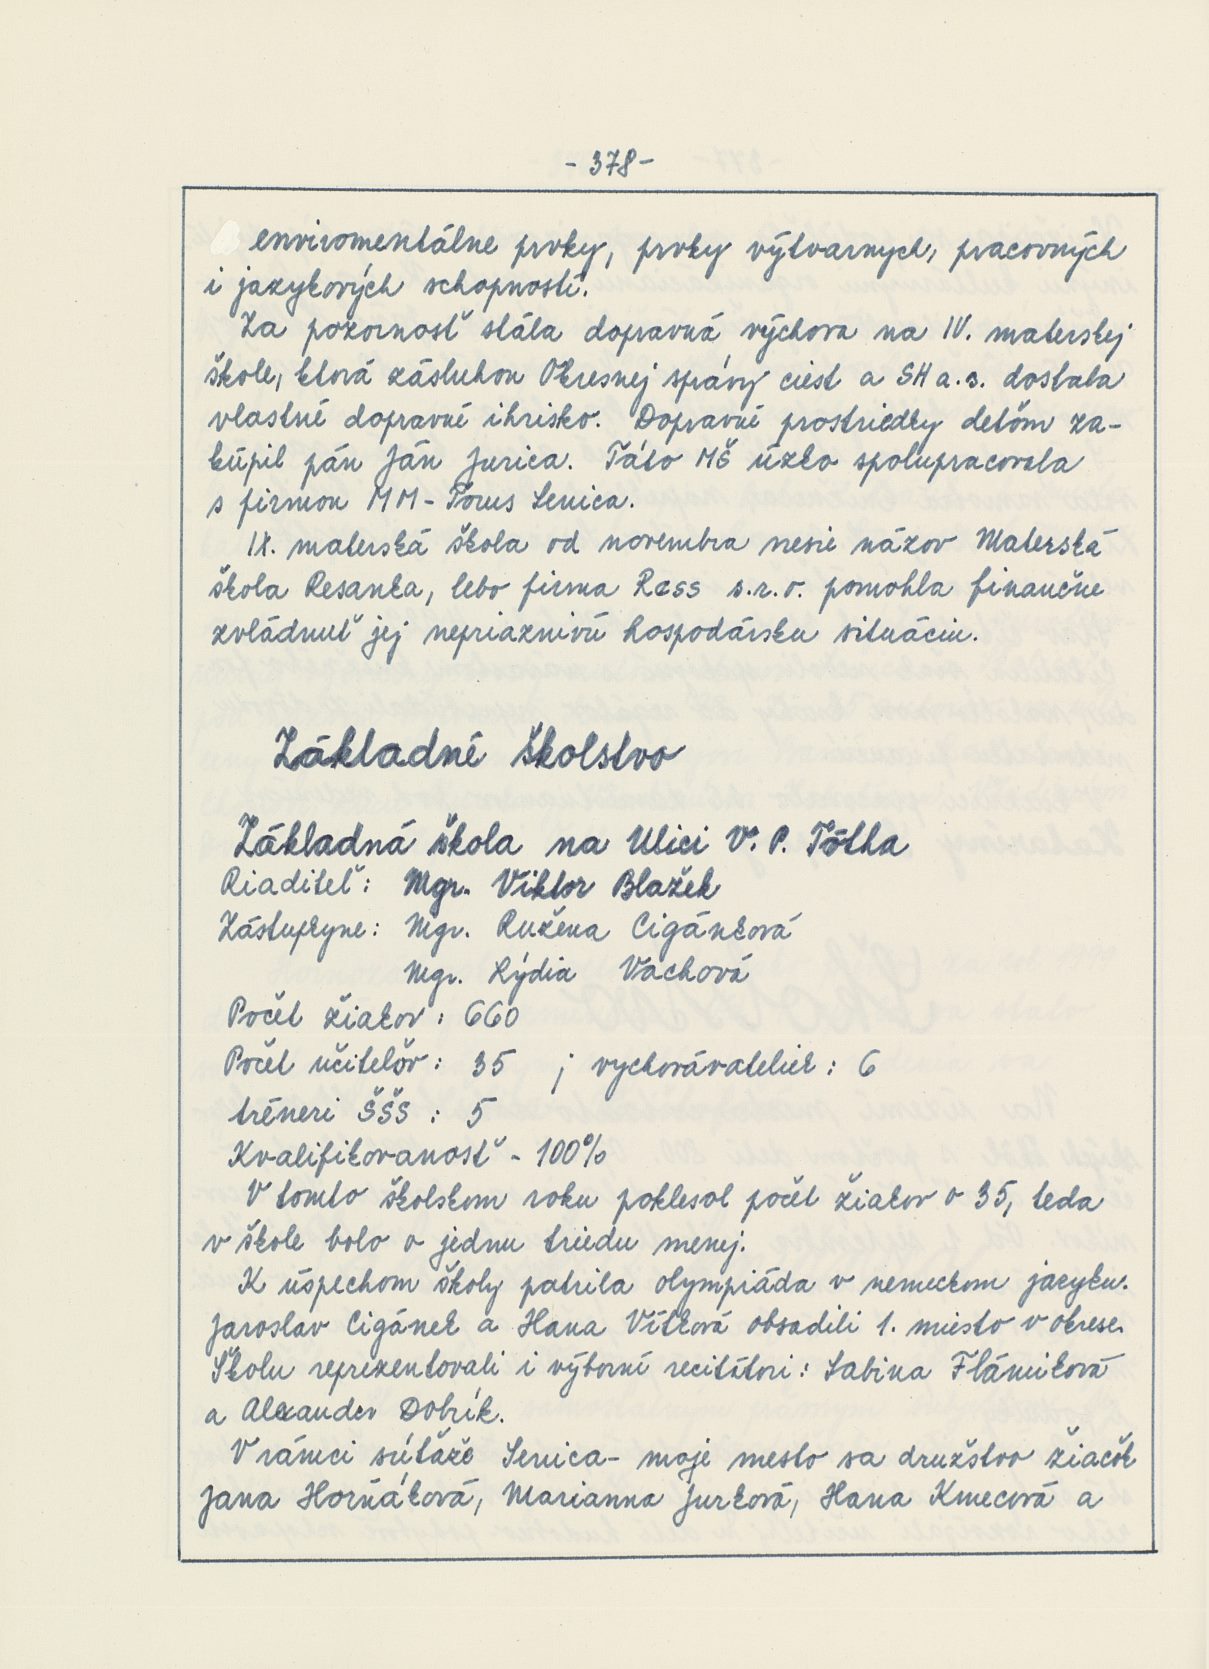 - 378 -
enviromentálne prvky, prvky výtvarných, pracovných
i jazykových schopností.
Za pozornosť stála dopravná výchova na IV. materskej
škole, ktorá zásluhou Okresnej správy ciest a SH a.s. dostala
vlastné dopravné ihrisko. Dopravné prostriedky deťom za-
kúpil pán Ján Jurica. Táto MŠ úzko spolupracovala
s firmou MM - Torus Senica.
IX. materská škola od novembra nesie názov Materská
škola Resanka, lebo firma Ress s.r.o. pomohla finančne
zvládnuť jej nepriaznivú hospodársku situáciu.
Základné školstvo
Základná škola na Ulici V. P. Tótha
Riaditeľ: Mgr. Viktor Blažek
Zástupkyne: Mgr. Ružena Cigánková
Mgr. Lýdia Vachová
Počet žiakov : 660
Počet učiteľov : 35 ; vychovávateliek : 6
tréneri ŠŠS : 5
Kvalifikovanosť - 100%
V tomto školskom roku poklesol počet žiakov o 35, teda
v škole bolo o jednu triedu menej.
K úspechom školy patrila olympiáda v nemeckom jazyku.
Jaroslav Cigánek a Hana Vítková obsadili 1. miesto v okrese.
Školu reprezentovali i výborní recitátori: Sabina Flámiková
a Alexander Dobrík.
V rámci súťaže Senica - moje mesto sa družstvo žiačok
Jana Horňáková, Marianna Jurková, Hana Kmecová a